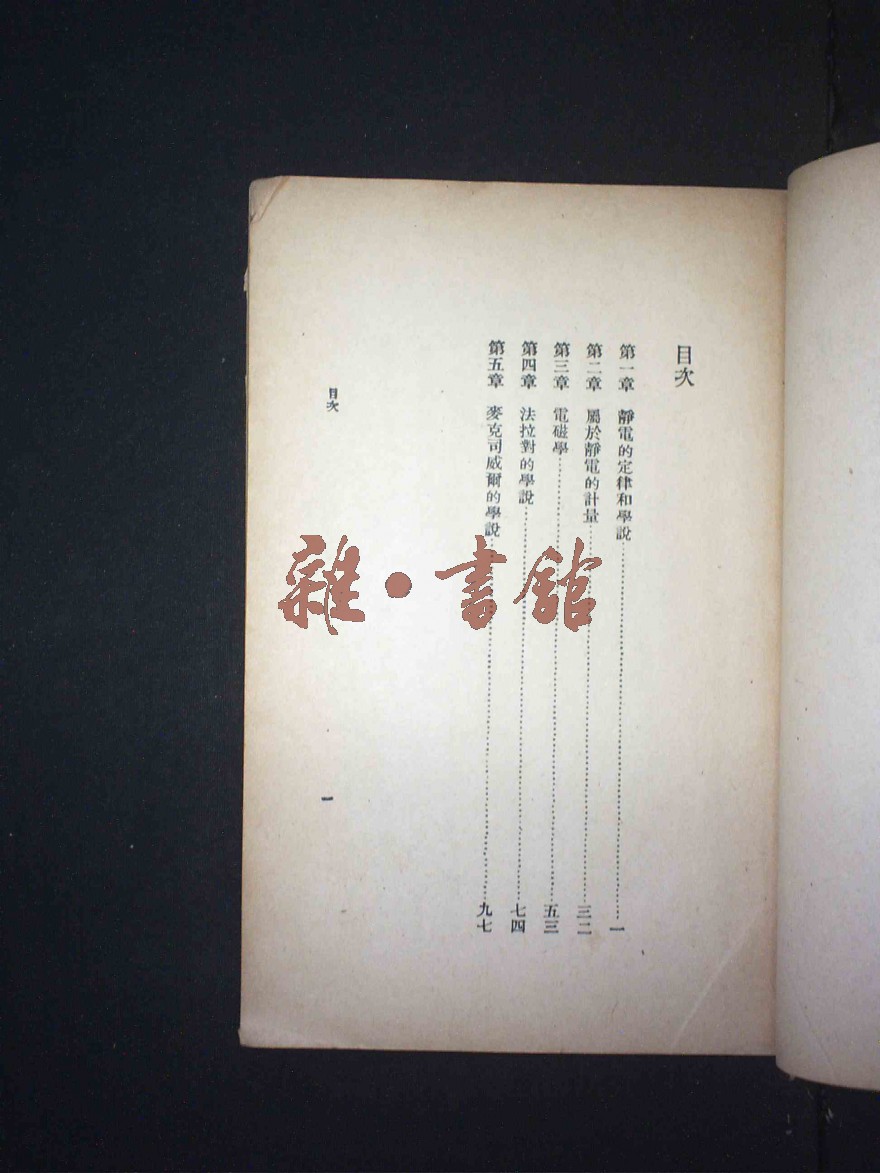 目次
第一章 靜電的定律和學說……一
第二章 屬於靜電的計量……三二
第三章 電磁學……五三
第四章 法拉對的學說……七四
第五章 麥克司威爾的學說……九七
目次
一
雜・書館